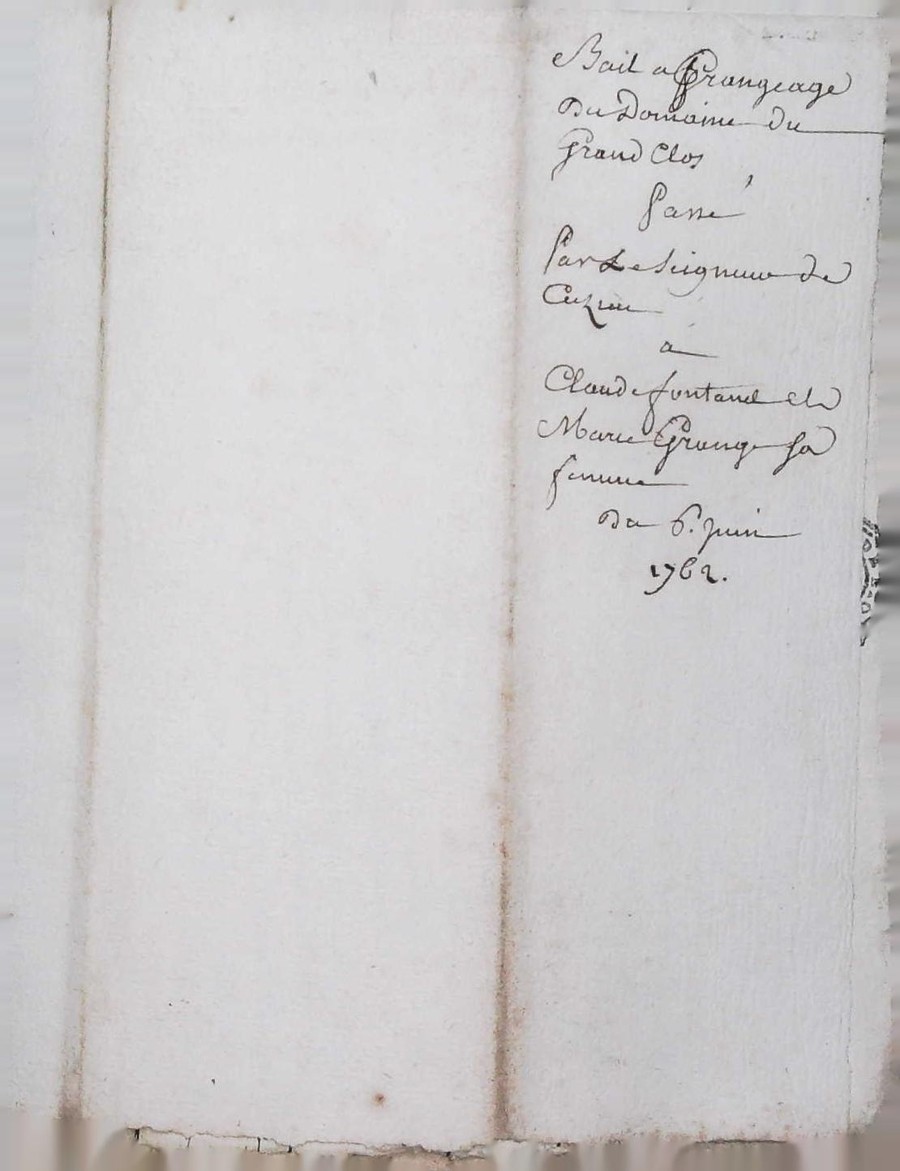 Bail a Grangeage
Du Domaine du
Grand Clos
Passé
Par Le Seigneur de
Cuzieu
à
Claude fontanel et
Marie Grange Sa
femme
Du 6. Juin
1762.